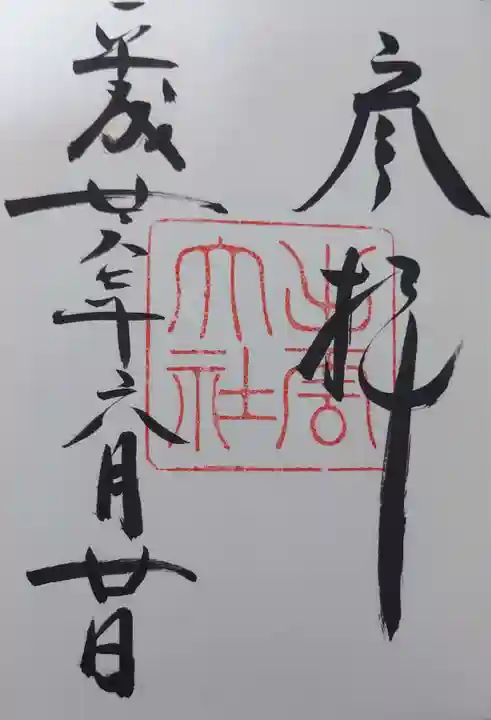 参拝
出雲
大社
平成廿八年六月廿日